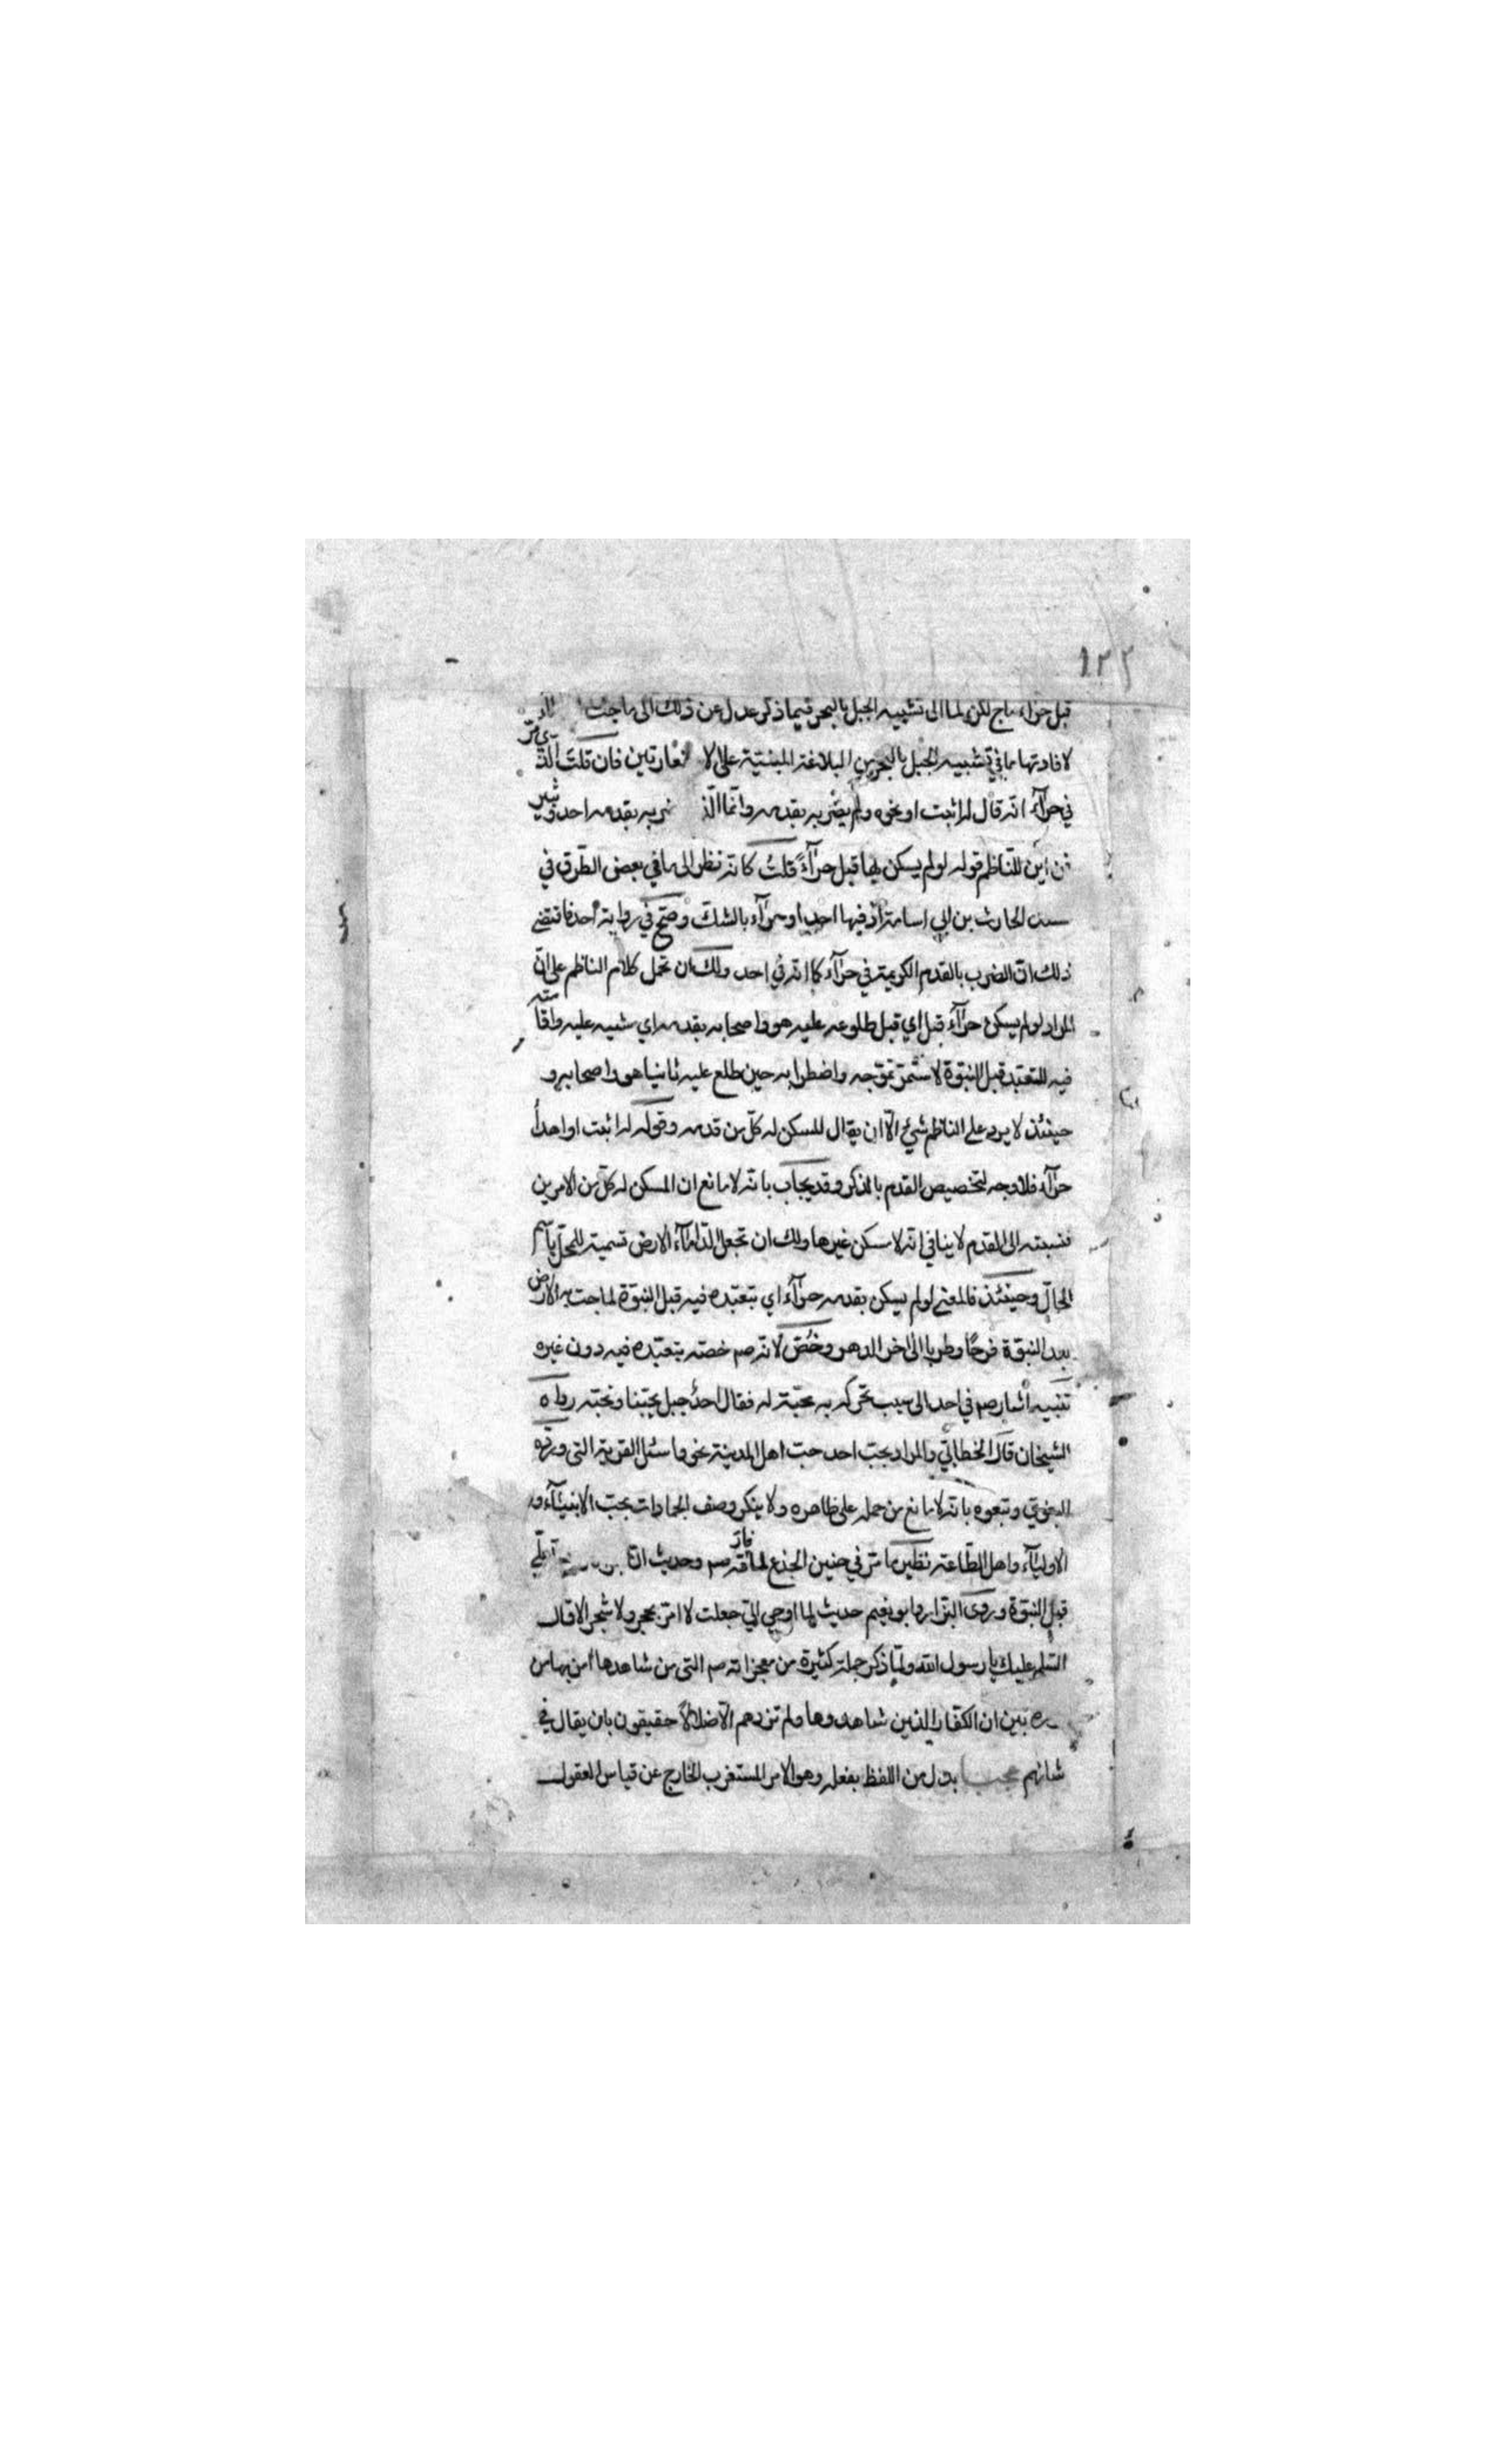 ١٢٢
قبل حرآء ماج لكن لما الى تشبيه الجبل بالبحر فيما ذكر عدل عن ذلك الى ماجت
لافادتها ما في تشبيه الجبل بالبحر من البلاغة المبنيّة على الا فان قلت الّذي مرّ
في حرآء انّه قال له اثبت او نحوه ولم يضربه بقدمه وانّما الّذي ضربه بقدمه احد وثبير
من اين للنّاظم قوله لو لم يسكن بها قبل حرآءً قلتُ كانّه نظر الى ما في بعض الطّرق في
مسند الحارث بن ابي اسامة اذ فيها احد او حرآء بالشكّ وصحّ في رواية احد فاقتضى
ذلك انّ الضرب بالقدم الكريمة في حرآء كما انّه في احد ولك ان تحمل كلام الناظم على انّ
المراد لو لم يسكن حرآءُ قبل اي قبل طلوعه عليه هو واصحابه بقدمه اي مشيه عليه واقامته
فيه للتعبّد قبل النبوّة لاستمرّ تموّجه واضطرابه حين طلع عليه ثانيا هو واصحابه و
حينئذ لا يرد على الناظم شيءٌ الّا ان يقال المسكن له كلّ من قدمه وقوله له اثبت او اهدأ
حرآء فلا وجه لتخصيص القدم بالذكر وقد يجاب بانّه لا مانع ان المسكن له كلّ من الامرين
فنسبته الى القدم لا ينافي انّه لا مسكن غيرها ولك ان تجعل الدّأمآء الارض تسمية للمحلّ باسم
الحالّ وحينئذ فالمعنى لو لم يسكن بقدمه حرآء اي بتعبّده فيه قبل النبوّة لماجت به الارض
بعد النبوّة فرحًا وطربا الى اخر الدهر وخُصّ لانّه صم خصّه بتعبّده فيه دون غيره
تنبيه اشار صم في احد الى سبب تحرّكه به محبّته له فقال احدٌ جبل يحبّنا ونحبّه رواه
الشيخان قال الخطابّي والمراد بحبّ احد حبّ اهل المدينة نحو واسئل القرية التي وردّه
البغوي وتبعوه بانّه لا مانع من حمله على ظاهره ولا ينكر وصف الجمادات بحبّ الانبيآء و
الاوليآء واهل الطّاعة نظير ما مرّ في حنين الجذع لما فارقه صم وحديث انّ
قبل النبوّة وروى البزّار وابو نعيم حديث لما اوحي اليّ جعلت لا امرّ بحجر ولا شجر الا قال
السّلم عليك يا رسول الله ولمّا ذكر جملة كثيرة من معجزاته صم التي من شاهدها امن بها من
تبين ان الكفّار الذين شاهدوها ولم تزدهم الّا ضلالاً حقيقون بان يقال في
شانهم عجبا بدل من اللفظ بفعله وهو الامر المستغرب الخارج عن قياس العقول